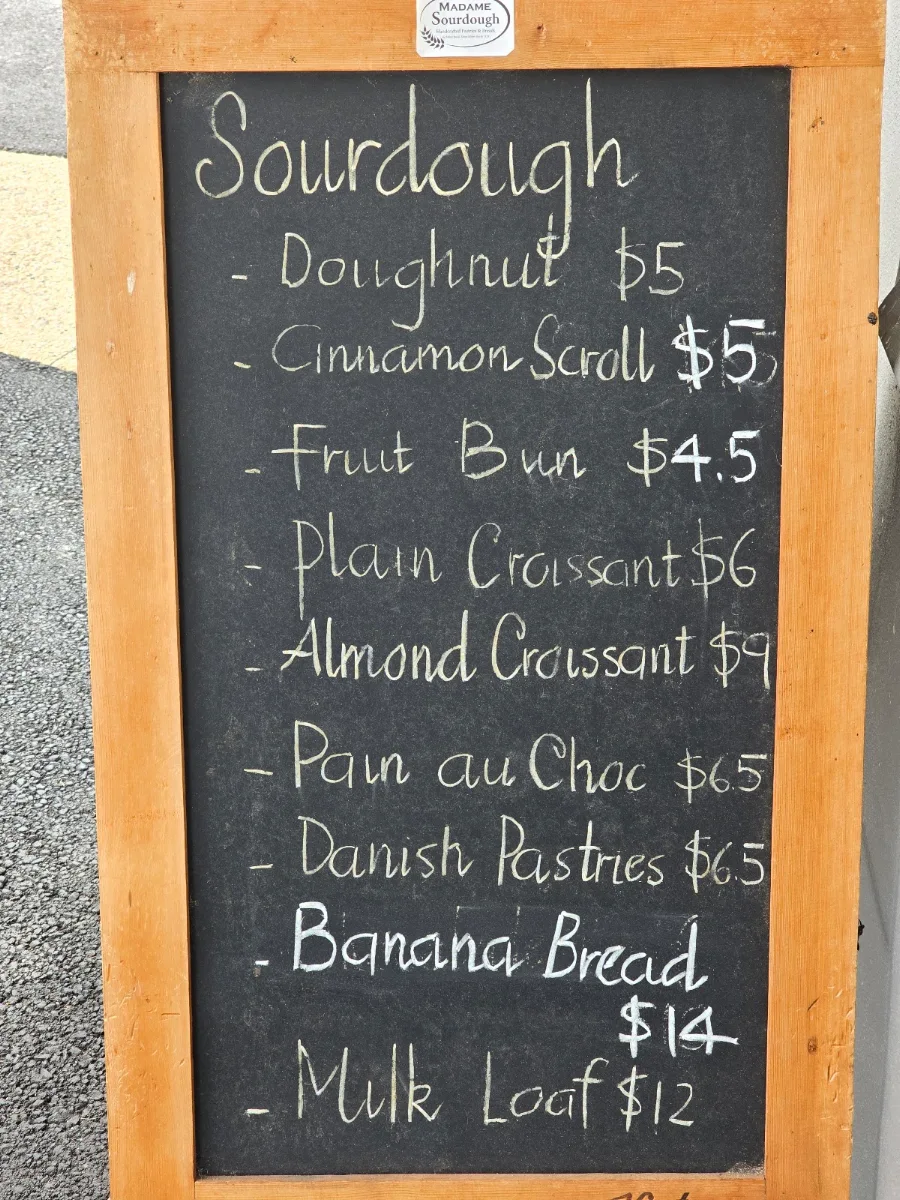 MADAME
Sourdough
Sourdough
- Doughnut $5
- Cinnamon Scroll $5
- Fruit Bun $4.5
- Plain Croissant $6
- Almond Croissant $9
- Pain au Choc $6.5
- Danish Pastries $6.5
- Banana Bread
$14
- Milk Loaf $12